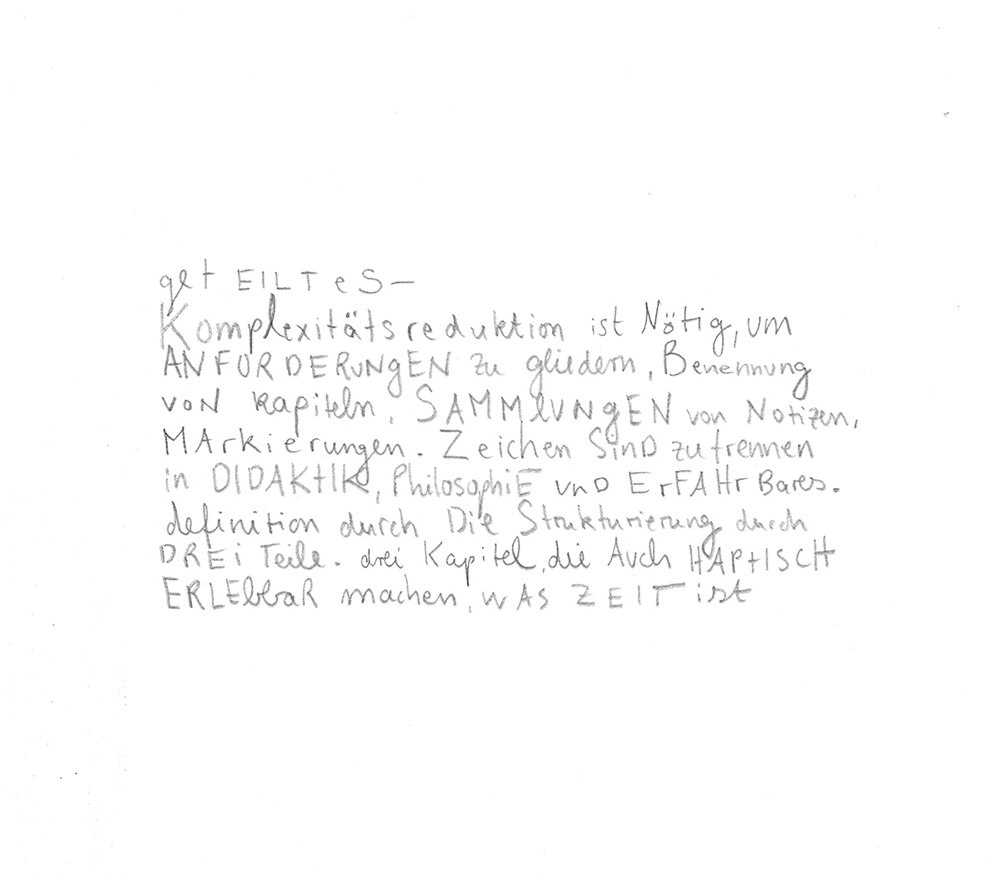 get EILTeS–
Komplexitätsreduktion ist Nötig, um
ANFORDERuNgEN zu gliedern, Benennung
voN kapiteln, SAMMlVNgEN von Notizen,
MArkierungen. Zeichen SinD zu trennen
in DIDAKtIK, PhilosophiE vnD ErFAHrBares.
definition durch Die Strukturierung durch
DREi Teile. drei Kapitel, die Auch HAPtISCH
ERLEbbaR machen, wAS ZEIT ist